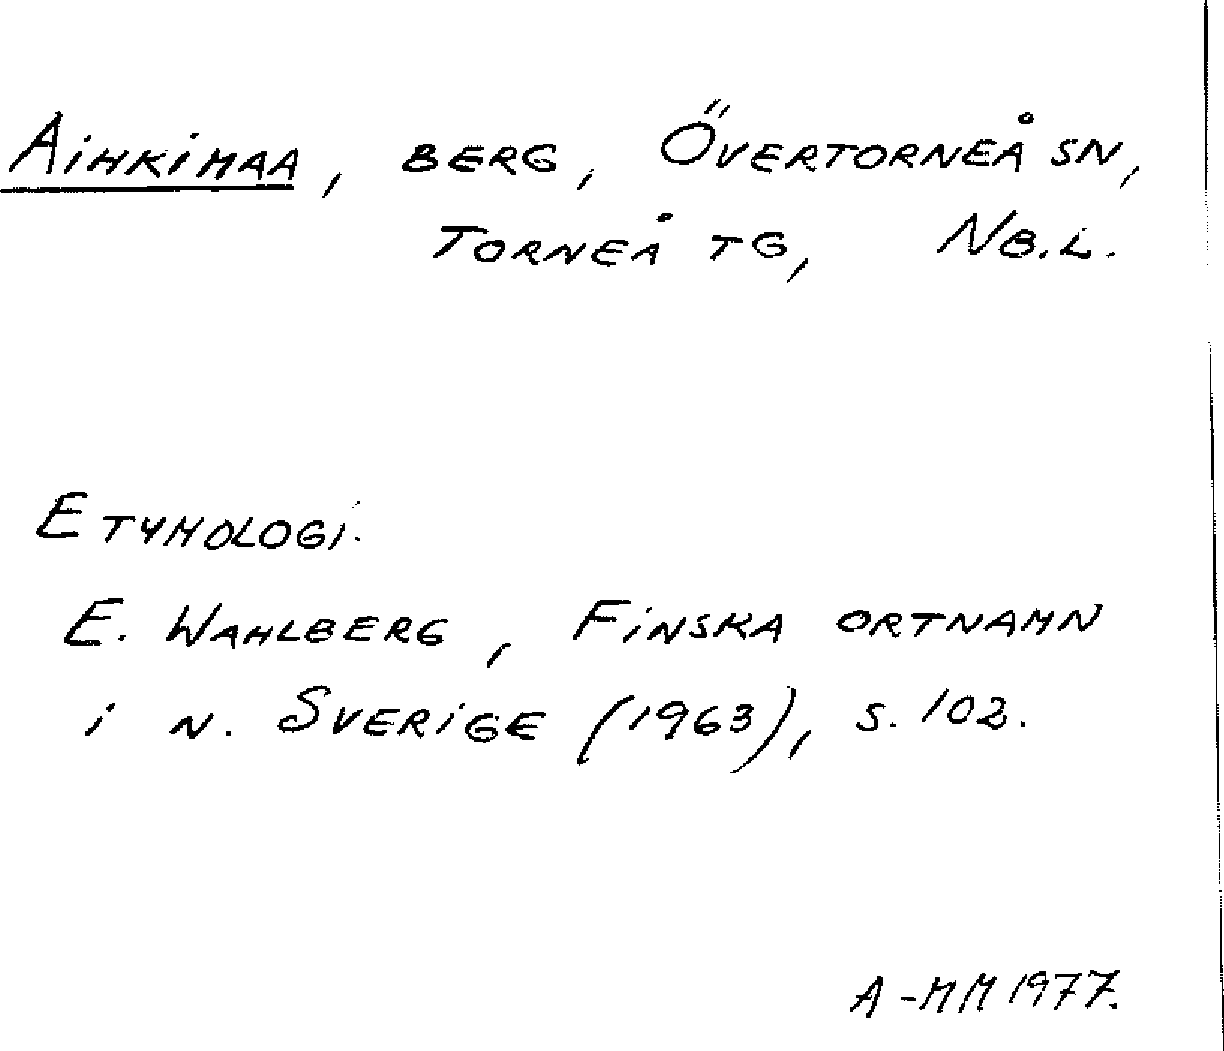 Aihkimaa, berg, Övertorneå sn,
Torneå tg, Nb.l.
Etymologi.
E. Wahlberg, Finska ortnamn
i n. Sverige (1963), s. 102.
A-MM 1977.